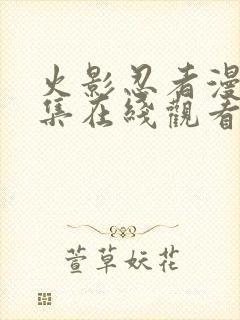 火影忍者漫
集在綫觀看
萱草妖花